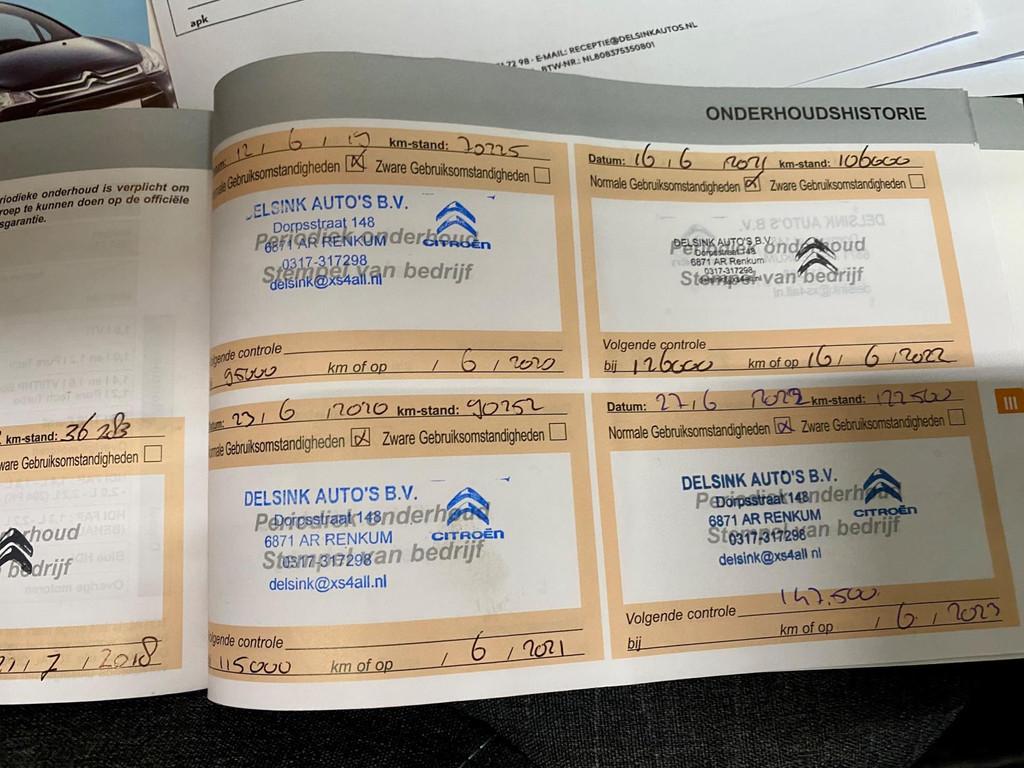 apk
72 98 - E-MAIL: RECEPTIE@DELSINKAUTOS.NL
BTW-NR.: NL808375350801
ONDERHOUDSHISTORIE
riodieke onderhoud is verplicht om
roep te kunnen doen op de officiële
sgarantie.
km-stand: 36283
ware Gebruiksomstandigheden
rhoud
bedrijf
7 / 2018
12 / 6 / 19 km-stand: 70225
male Gebruiksomstandigheden Zware Gebruiksomstandigheden
DELSINK AUTO'S B.V.
Dorpsstraat 148
6871 AR RENKUM
0317-317298
delsink@xs4all.nl
CITROËN
Periodiek onderhoud
Stempel van bedrijf
olgende controle
95000 km of op / 6 / 2020
um: 23 / 6 / 2020 km-stand: 90252
male Gebruiksomstandigheden Zware Gebruiksomstandigheden
DELSINK AUTO'S B.V.
Dorpsstraat 148
6871 AR RENKUM
0317-317298
delsink@xs4all.nl
CITROËN
Periodiek onderhoud
Stempel van bedrijf
olgende controle
115000 km of op / 6 / 2021
Datum: 16 / 6 / 2021 km-stand: 106000
Normale Gebruiksomstandigheden Zware Gebruiksomstandigheden
DELSINK AUTO'S B.V.
Dorpsstraat 148
6871 AR Renkum
0317-317298
Periodiek onderhoud
Stempel van bedrijf
Volgende controle
bij 126000 km of op 16 / 6 / 2022
Datum: 27 / 6 / 2022 km-stand: 122500
Normale Gebruiksomstandigheden Zware Gebruiksomstandigheden
DELSINK AUTO'S B.V.
Dorpsstraat 148
6871 AR RENKUM
0317-317298
delsink@xs4all.nl
CITROËN
Periodiek onderhoud
Stempel van bedrijf
Volgende controle 147.500
bij km of op / 6 / 2023
III